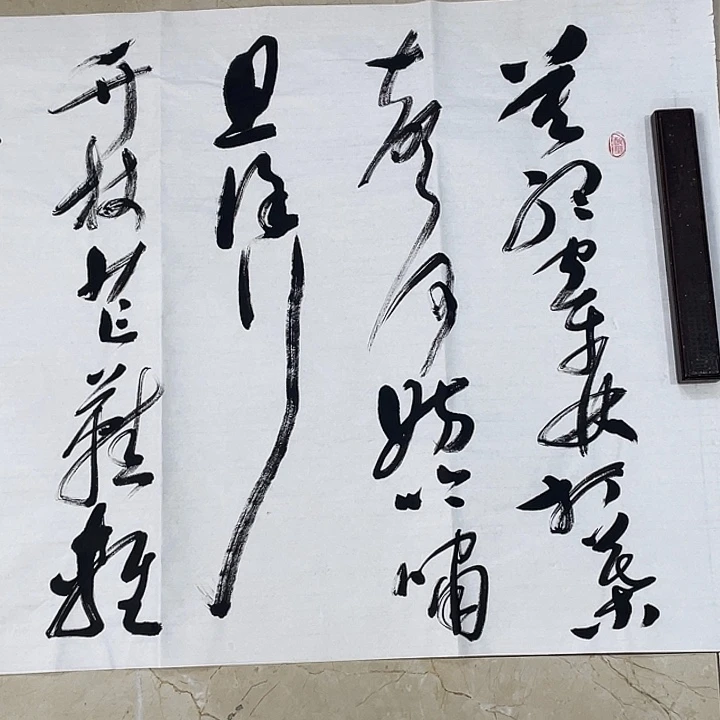 莫听穿林打叶
声何妨吟啸
且徐行
竹杖芒鞋轻